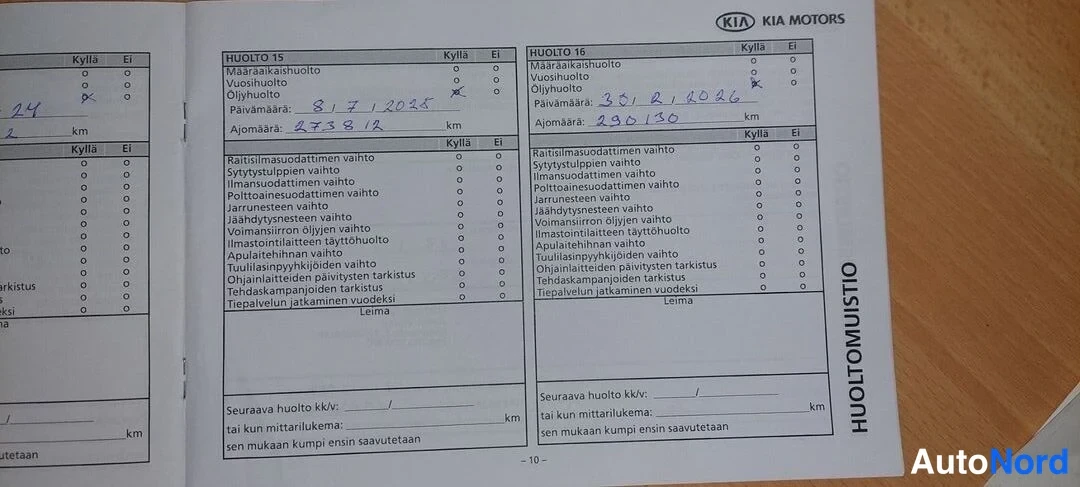 KIA KIA MOTORS
Kyllä Ei
24
2 km
Kyllä Ei
arkistus
/
km
utetaan
HUOLTO 15 Kyllä Ei
Määräaikaishuolto
Vuosihuolto
Öljyhuolto
Päivämäärä: 8 / 7 / 2025
Ajomäärä: 273812 km
Kyllä Ei
Raitisilmasuodattimen vaihto
Sytytystulppien vaihto
Ilmansuodattimen vaihto
Polttoainesuodattimen vaihto
Jarrunesteen vaihto
Jäähdytysnesteen vaihto
Voimansiirron öljyjen vaihto
Ilmastointilaitteen täyttöhuolto
Apulaitehihnan vaihto
Tuulilasinpyyhkijöiden vaihto
Ohjainlaitteiden päivitysten tarkistus
Tehdaskampanjoiden tarkistus
Tiepalvelun jatkaminen vuodeksi
Leima
Seuraava huolto kk/v: /
tai kun mittarilukema: km
sen mukaan kumpi ensin saavutetaan
HUOLTO 16 Kyllä Ei
Määräaikaishuolto
Vuosihuolto
Öljyhuolto
Päivämäärä: 30 / 2 / 2026
Ajomäärä: 290130 km
Kyllä Ei
Raitisilmasuodattimen vaihto
Sytytystulppien vaihto
Ilmansuodattimen vaihto
Polttoainesuodattimen vaihto
Jarrunesteen vaihto
Jäähdytysnesteen vaihto
Voimansiirron öljyjen vaihto
Ilmastointilaitteen täyttöhuolto
Apulaitehihnan vaihto
Tuulilasinpyyhkijöiden vaihto
Ohjainlaitteiden päivitysten tarkistus
Tehdaskampanjoiden tarkistus
Tiepalvelun jatkaminen vuodeksi
Leima
Seuraava huolto kk/v: /
tai kun mittarilukema: km
sen mukaan kumpi ensin saavutetaan
HUOLTOMUISTIO
– 10 –
AutoNord